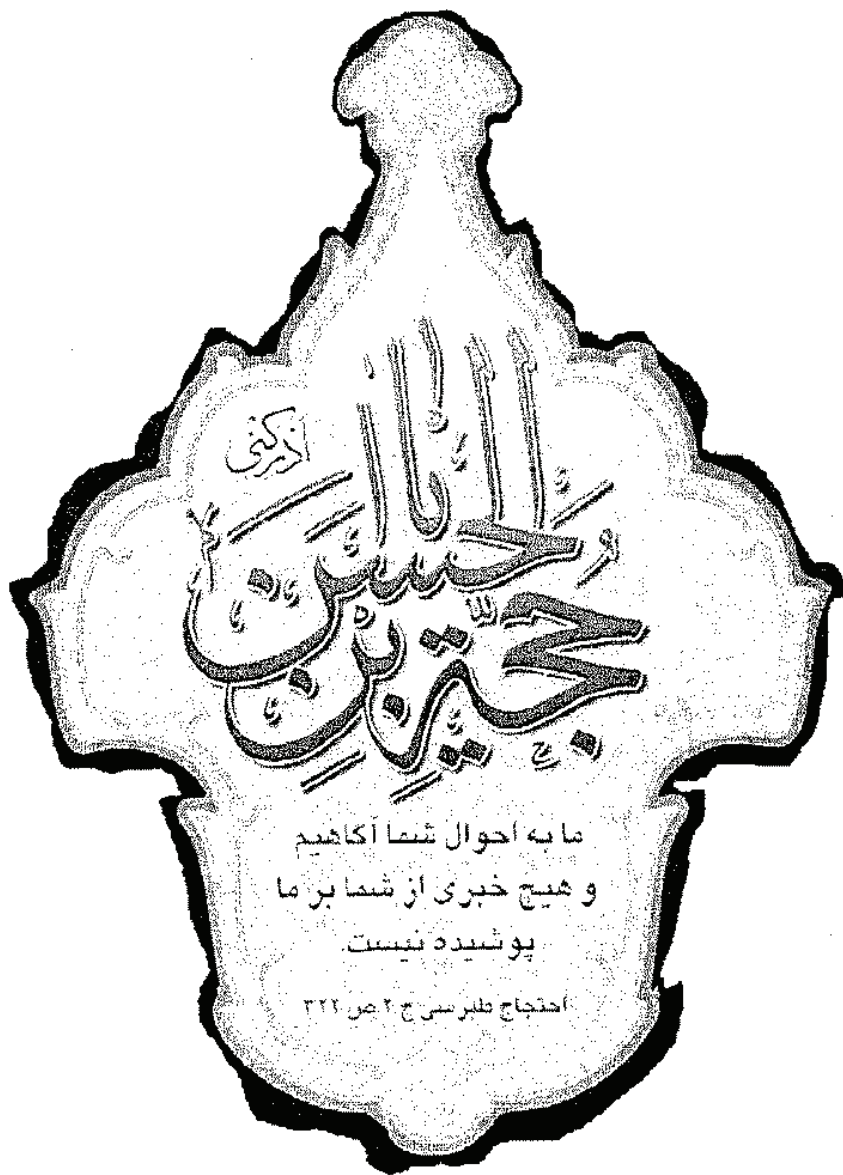 یا حجة بن الحسن
ادرکنی
ما به احوال شما آگاهیم
و هیچ خبری از شما بر ما
پوشیده نیست.
احتجاج طبرسی ج ۲ ص ۳۲۲